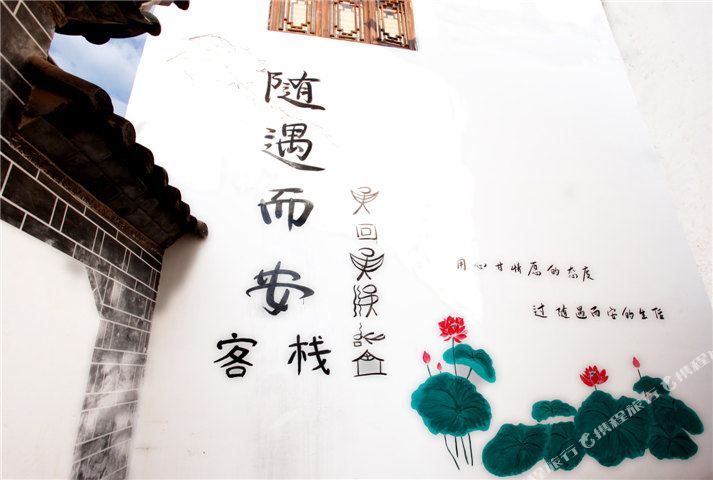 随遇而安
客栈
用心甘情愿的态度
过随遇而安的生活
携程旅行
携程旅行